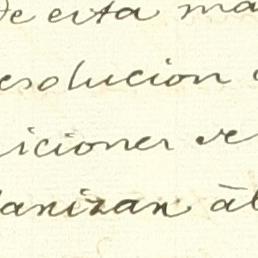 de esta ma
esolucion
iciones se
anizan àl